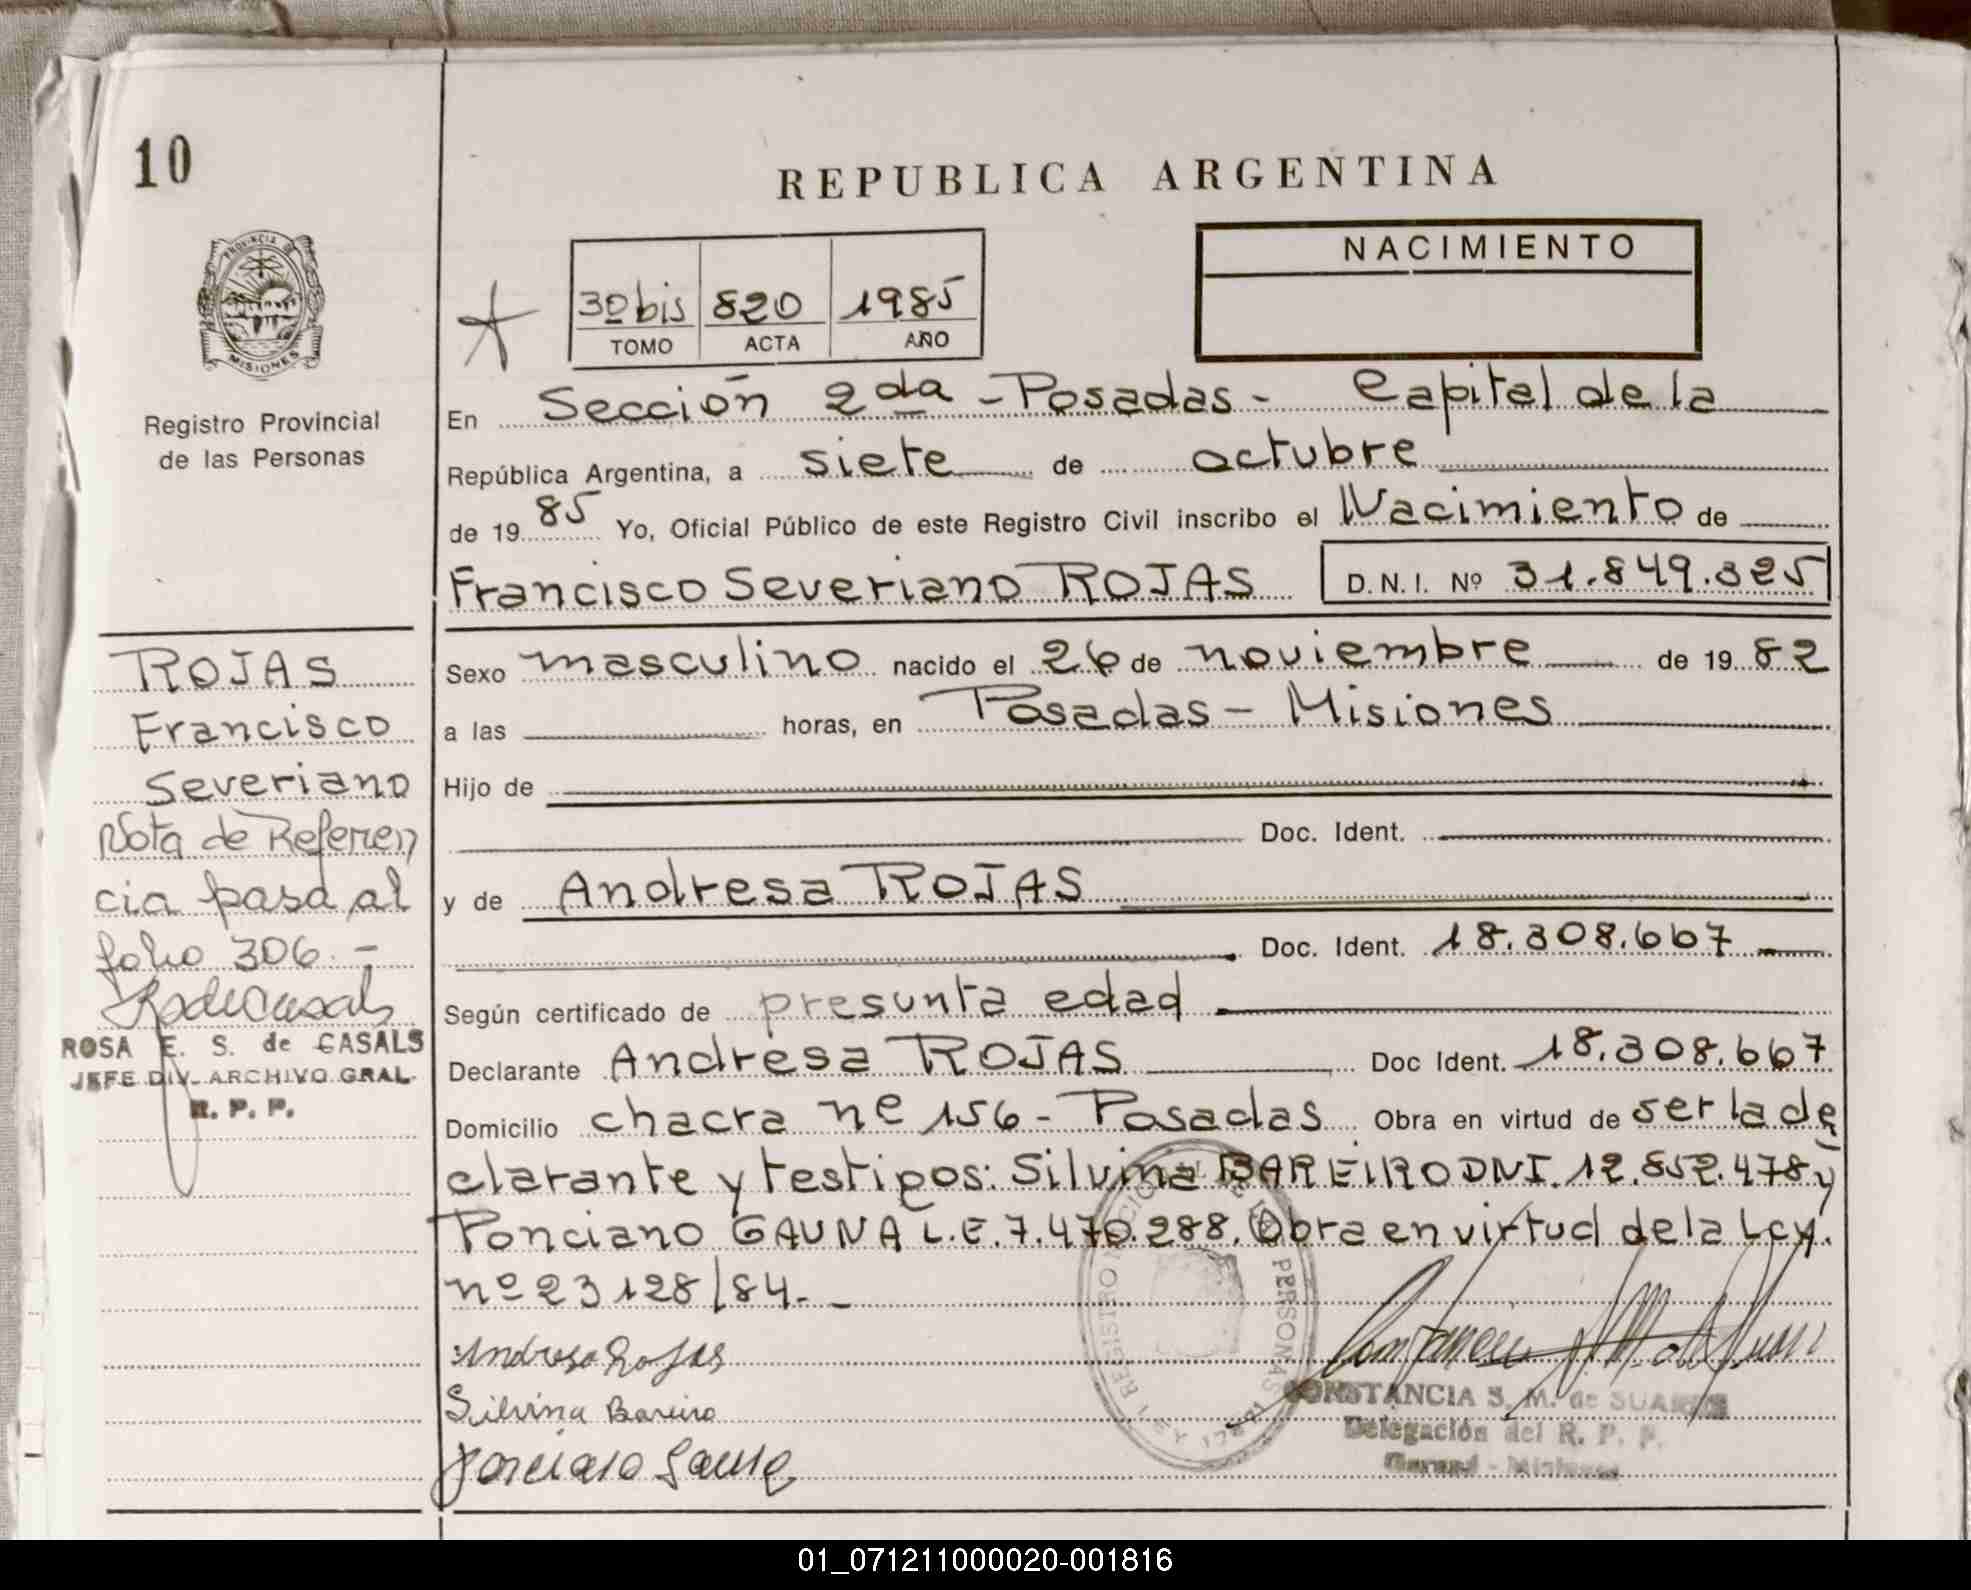 10
REPUBLICA ARGENTINA
PROVINCIA DE
MISIONES
NACIMIENTO
3º bis 820 1985
TOMO ACTA AÑO
Registro Provincial
de las Personas
En Sección 2da - Posadas - Capital de la
República Argentina, a siete de octubre
de 1985 Yo, Oficial Público de este Registro Civil inscribo el Nacimiento de
Francisco Severiano ROJAS D.N.I. Nº 31.849.325
Sexo masculino nacido el 26 de noviembre de 1982
a las horas, en Posadas - Misiones
Hijo de
Doc. Ident.
y de Andresa ROJAS
Doc. Ident. 18.308.667
Según certificado de presunta edad
Declarante Andresa ROJAS Doc Ident. 18.308.667
Domicilio chacra nº 156 - Posadas Obra en virtud de ser la de
clarante y testigos: Silvina BAREIRO DNI. 12.852.478 y
Ponciano GAUNA L.E. 7.470.288. Obra en virtud de la Ley.
nº 23128/84.-
Andresa Rojas
Silvina Bareiro
Ponciano Gauna
ROJAS
Francisco
Severiano
Nota de Referen
cia pasa al
folio 306.-
ROSA E. S. de CASALS
JEFE DIV. ARCHIVO GRAL.
R. P. P.
CONSTANCIA S. M. de SUAREZ
Delegación del R. P. P.
01_071211000020-001816